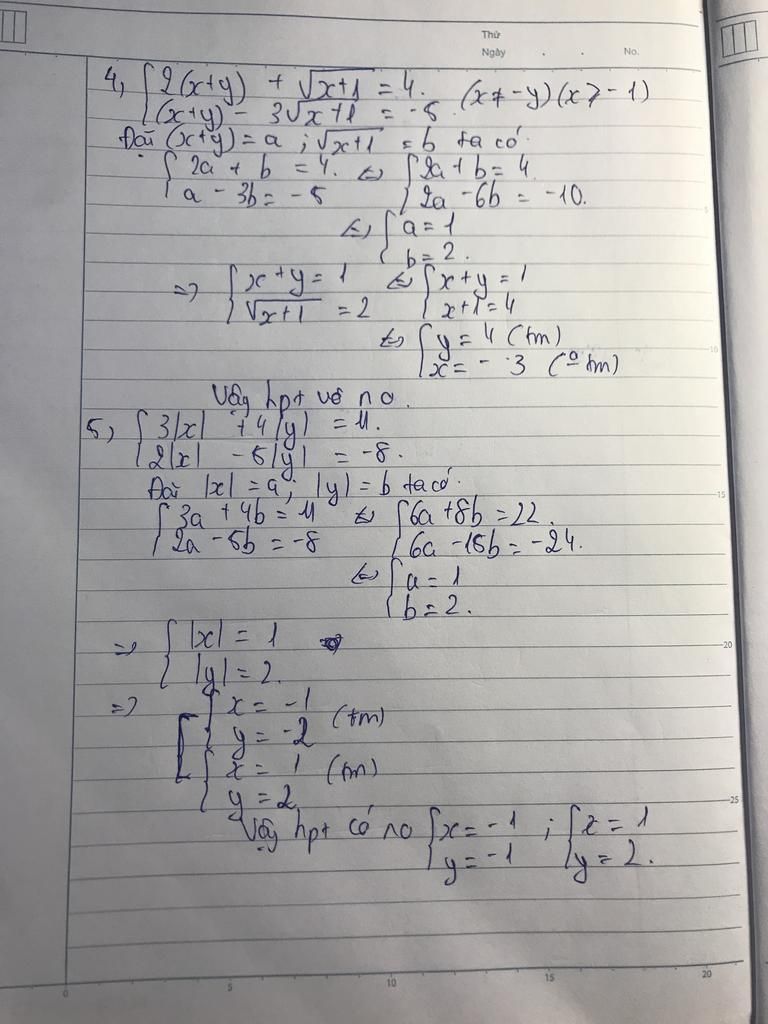 Thứ
Ngày . . No.
4, { 2(x+y) + √(x+1) = 4. (x ≠ -y) (x ≥ -1)
(x+y) - 3√(x+1) = -5.
Đặt (x+y) = a ; √(x+1) = b ta có
{ 2a + b = 4. ⇔ { 2a + b = 4
a - 3b = -5 2a - 6b = -10.
⇔ { a = 1
b = 2.
=> { x+y = 1 ⇔ { x+y = 1
√(x+1) = 2 x+1 = 4
⇔ { y = 4 (tm)
x = -3 (º tm)
Vậy hpt vô no.
5, { 3|x| + 4|y| = 11.
2|x| - 5|y| = -8.
Đặt |x| = a ; |y| = b ta có
{ 3a + 4b = 11 ⇔ { 6a + 8b = 22.
2a - 5b = -8 6a - 15b = -24.
⇔ { a = 1
b = 2.
=> { |x| = 1
|y| = 2.
=> [ { x = -1 (tm)
y = -2
{ x = 1 (tm)
y = 2
Vậy hpt có no { x = -1 ; { x = 1
y = -1 y = 2.
5
10
15
20
25
0 5 10 15 20